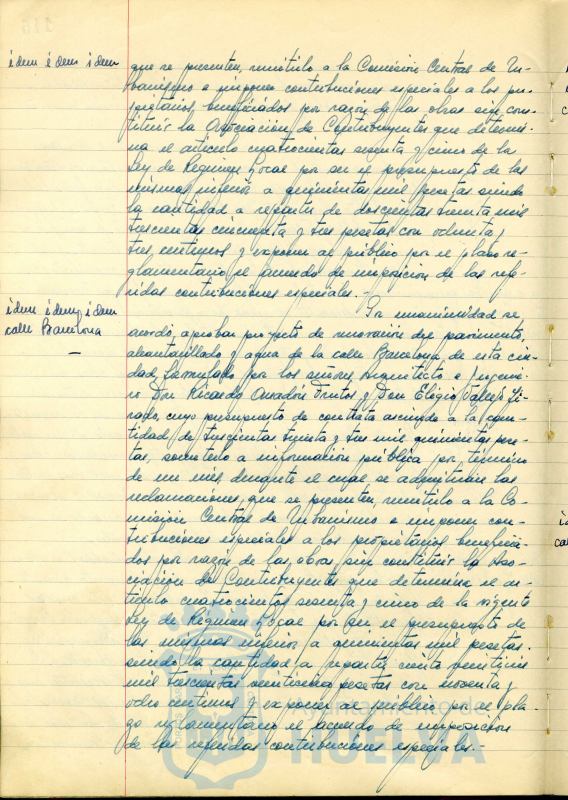 idem idem idem
que se presenten, remitirlo a la Comisión Central de Ur-
banismo e imponer contribuciones especiales a los pro-
pietarios beneficiados por razón de las obras sin cons-
tituir la Asociación de Contribuyentes que determi-
na el artículo cuatrocientos sesenta y cinco de la
Ley de Régimen Local por ser el presupuesto de las
mismas inferior a quinientas mil pesetas siendo
la cantidad a repartir de doscientas treinta mil
trescientas cincuenta y tres pesetas con ochenta y
tres centimos y exponer al público por el plazo re-
glamentario el acuerdo de imposición de las refe-
ridas contribuciones especiales.-
idem idem, idem
calle Barcelona
Por unanimidad se
acordó, aprobar proyecto de renovación del pavimento,
alcantarillado y agua de la calle Barcelona, de esta ciu-
dad formulado por los señores Arquitecto e Ingenie-
ro Don Ricardo Anadón Frutos y Don Eligio
cuyo presupuesto de contrata asciende a la can-
tidad de trescientas treinta y tres mil quinientas pese-
tas, someterlo a información pública por término
de un mes durante el cual se admitirán las
reclamaciones, que se presenten, remitirlo a la Co-
misión Central de Urbanismo e imponer con-
tribuciones especiales a los propietarios beneficia-
dos por razón de las obras sin constituir la Aso-
ciación de Contribuyentes que determina el ar-
tículo cuatrocientos sesenta y cinco de la vigente
Ley de Régimen Local por ser el presupuesto de
las mismas inferior a quinientas mil pesetas.
siendo la cantidad a repartir ciento
mil trescientas veinticinco pesetas con noventa y
ocho centimos y exponer al público por el pla-
zo reglamentario el acuerdo de imposición
de las referidas contribuciones especiales.-
Ayuntamiento de
HUELVA